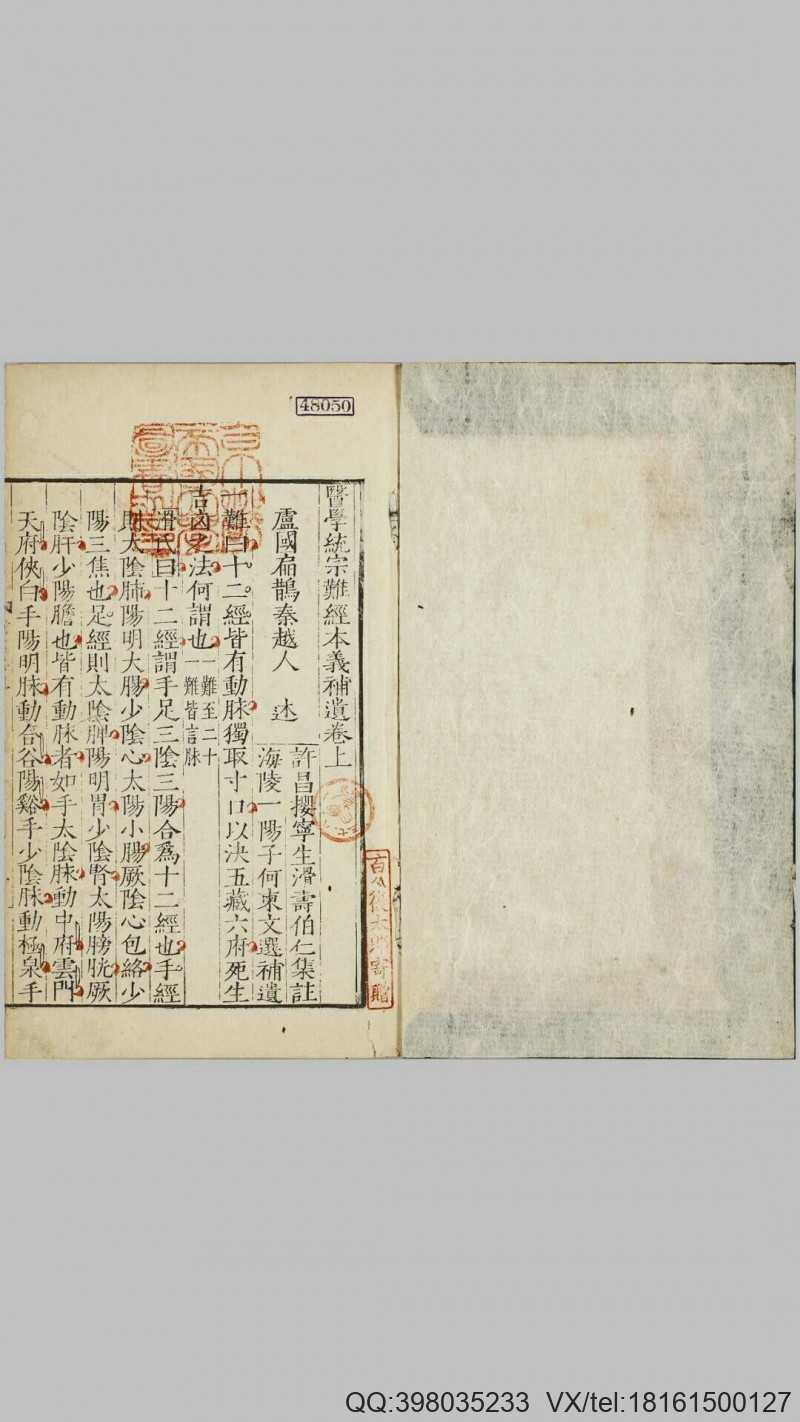 48050
醫學統宗難經本義補遺卷上
許昌攖寧生滑壽伯仁集註
盧國扁鵲秦越人　述
海陵一陽子何柬文選補遺
難曰十二經皆有動脉獨取寸口以決五藏六府死生
吉凶之法何謂也一難至二十
一難皆言脉
滑氏曰十二經謂手足三陰三陽合爲十二經也手經
則太陰肺陽明大腸少陰心太陽小腸厥陰心包絡少
陽三焦也足經則太陰脾陽明胃少陰腎太陽膀胱厥
陰肝少陽膽也皆有動脉者如手太陰脉動中府雲門
天府俠白手陽明脉動合谷陽谿手少陰脉動極泉手
寄贈
QQ:398035233 VX/tel:18161500127